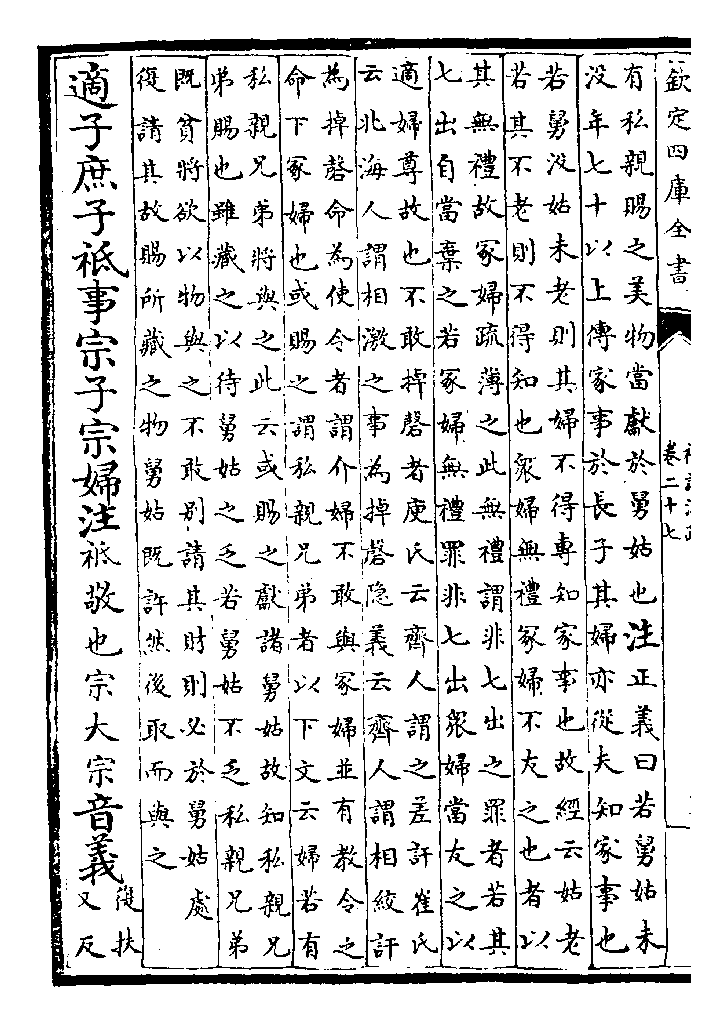 欽定四庫全書
卷二十七
有私親賜之美物當獻於舅姑也注正義曰若舅姑未
沒年七十以上傳家事於長子其婦亦從夫知家事也
若舅沒姑未老則其婦不得專知家事也故經云姑老
若其不老則不得知也衆婦無禮冢婦不友之也者以
其無禮故冢婦疏薄之此無禮謂非七出之罪者若其
七出自當棄之若冢婦無禮罪非七出衆婦當友之以
適婦尊故也不敢掉磬者庾氏云齊人謂之差訐崔氏
云北海人謂相激之事為掉磬隱義云齊人謂相絞訐
為掉磬命為使令者謂介婦不敢與冢婦並有教令之
命下冢婦也或賜之謂私親兄弟者以下文云婦若有
私親兄弟將與之此云或賜之獻諸舅姑故知私親兄
弟賜也雖藏之以待舅姑之乏若舅姑不乏私親兄弟
既貧將欲以物與之不敢别請其財則必於舅姑處
復請其故賜所藏之物舅姑既許然後取而與之
適子庶子祗事宗子宗婦注祗敬也宗大宗音義復扶
又反